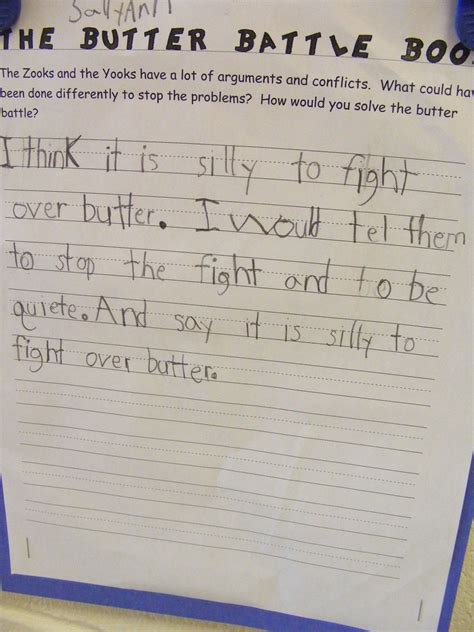 SallyAnn
THE BUTTER BATTLE BOO
The Zooks and the Yooks have a lot of arguments and conflicts. What could hav
been done differently to stop the problems? How would you solve the butter
battle?
I think it is silly to fight
over butter. I would tel them
to stop the fight and to be
quiete. And say it is silly to
fight over butter.